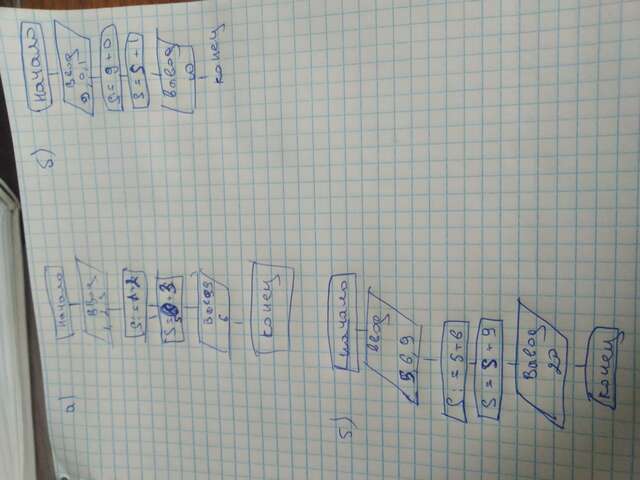 а)
Начало
Ввод
1, 2, 3
S:=1+2
S=S+3
Вывод
6
Конец
б)
Начало
Ввод
9, 0, 1
S:=9+0
S=S+1
Вывод
10
конец
б)
Начало
Ввод
5, 6, 9
S:=5+6
S=S+9
Вывод
20
Конец